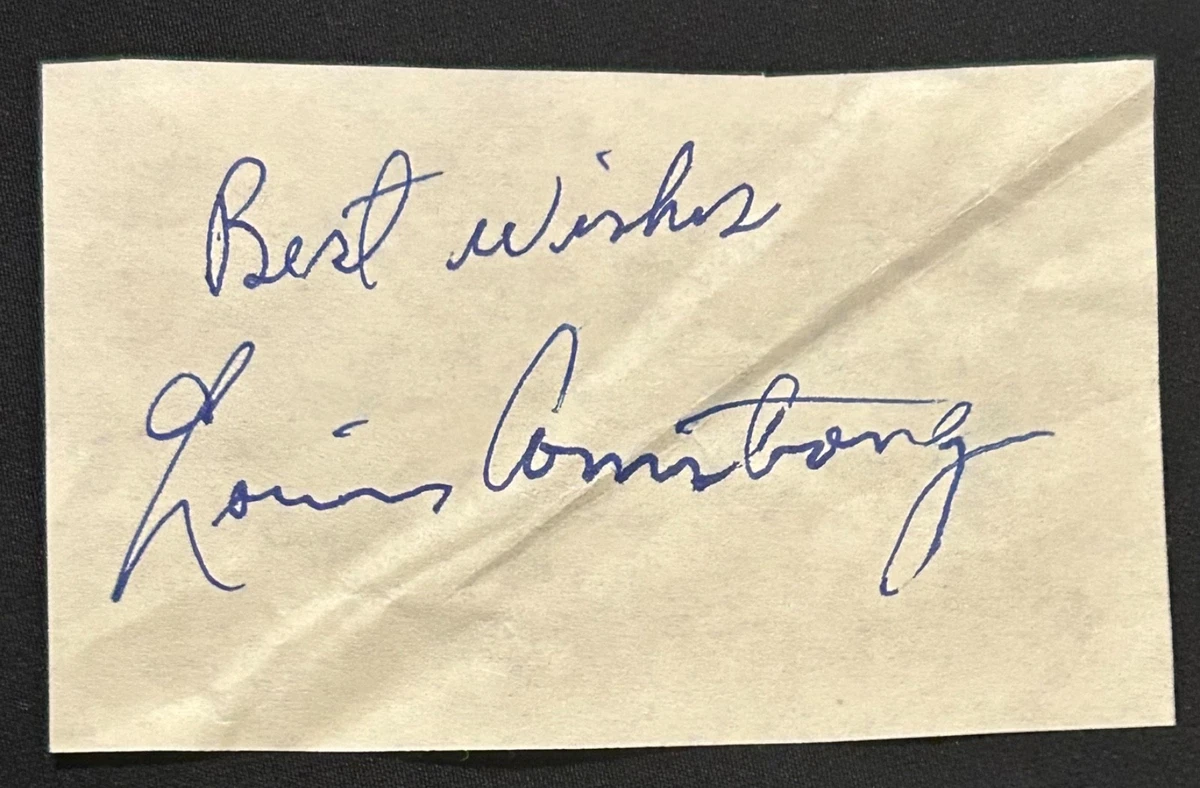 Best wishes
Louis Armstrong